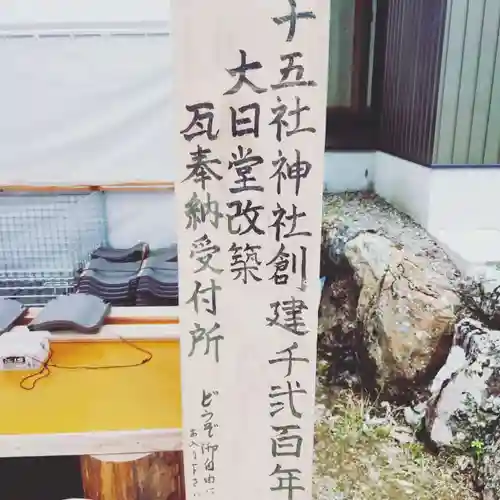 十五社神社創建千弐百年
大日堂改築
瓦奉納受付所
どうぞ御自由に